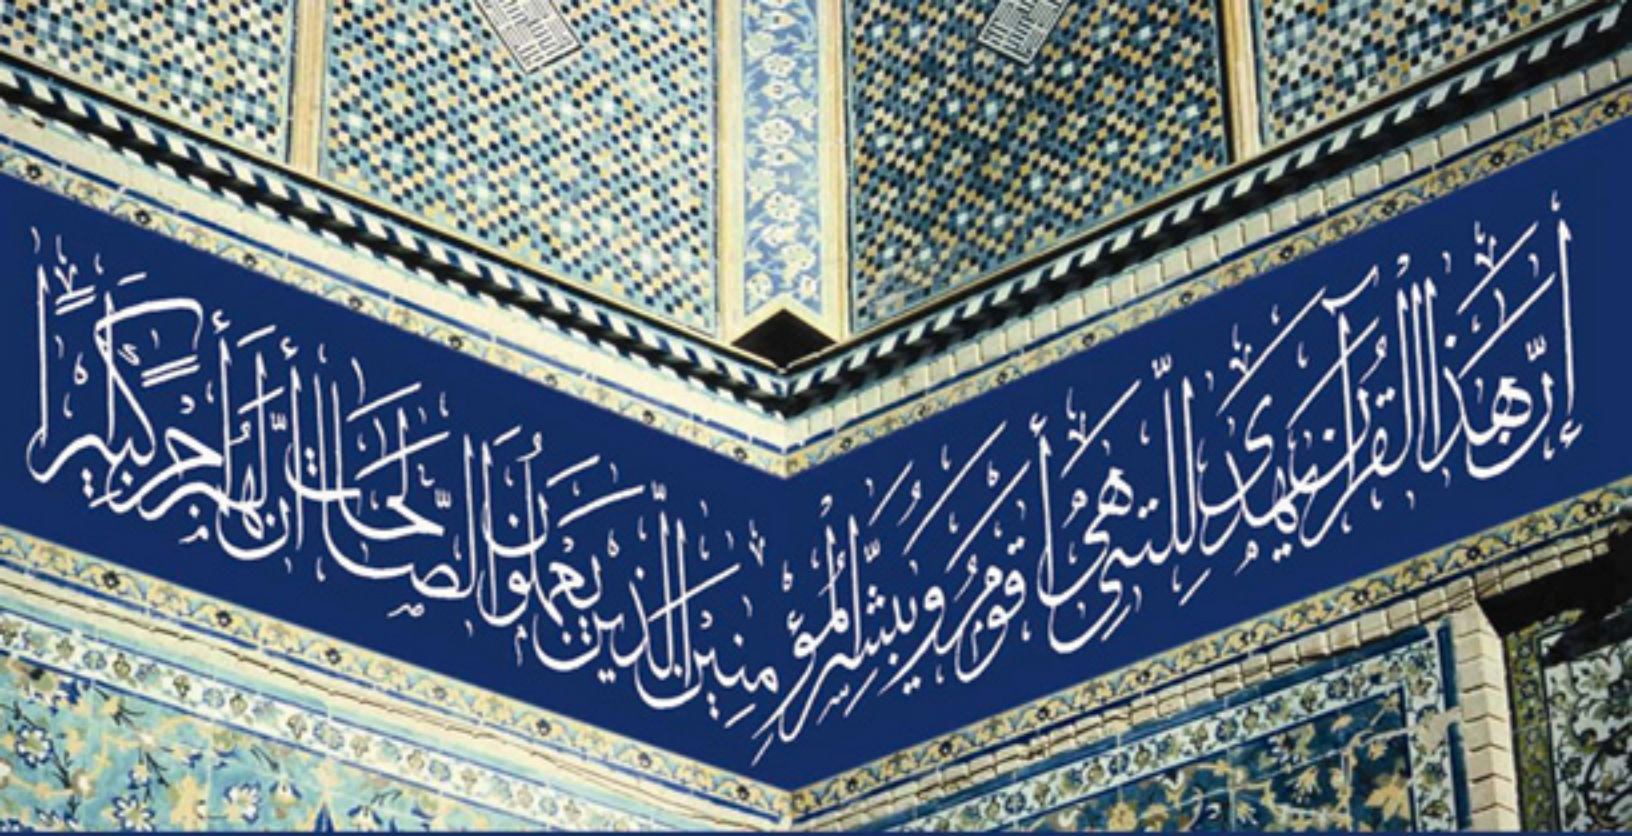 إِنَّ هَٰذَا الْقُرْآنَ يَهْدِي لِلَّتِي هِيَ أَقْوَمُ وَيُبَشِّرُ الْمُؤْمِنِينَ الَّذِينَ يَعْمَلُونَ الصَّالِحَاتِ أَنَّ لَهُمْ أَجْرًا كَبِيرًا